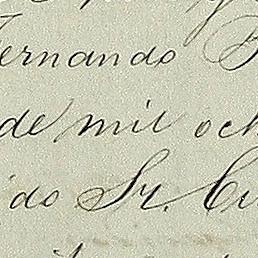 Fernando
de mil och
do Sr. Cu